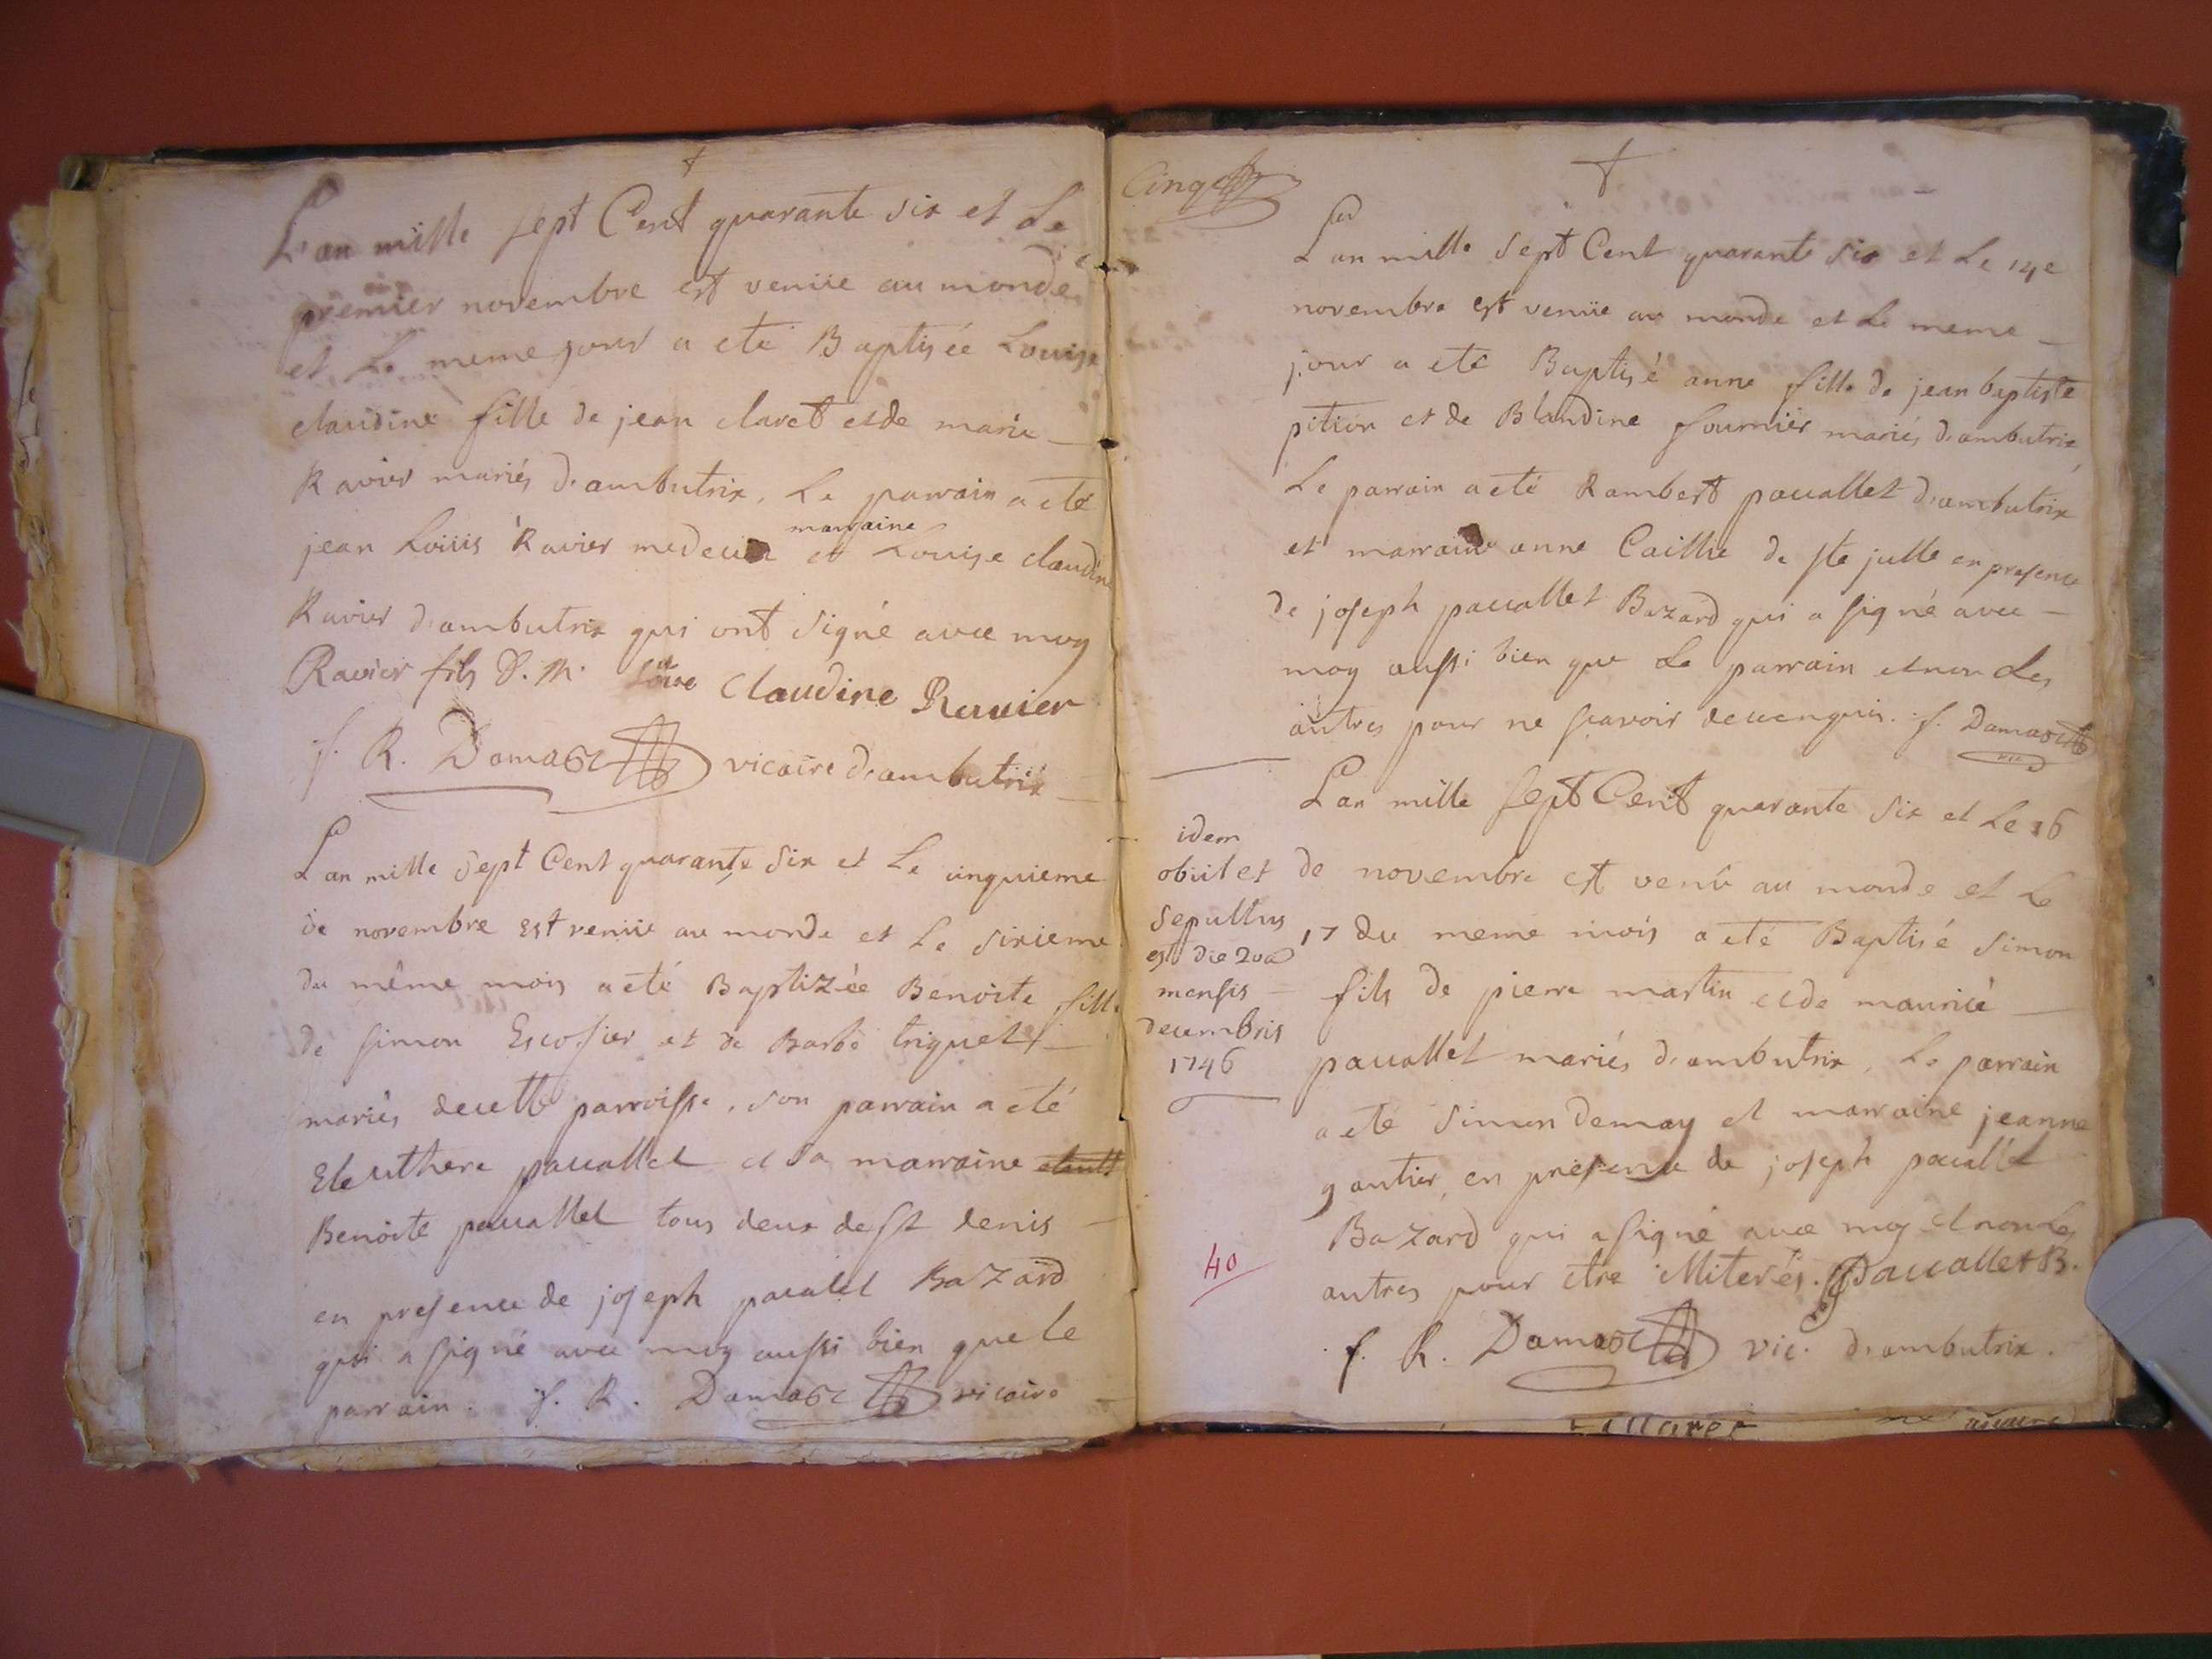 L'an mille sept Cent quarante six et Le
premier novembre est venüe au monde
et Le meme jour a eté Baptisée Louise
claudine fille de jean claret et de marie
Ravier mariés d'ambutrix, Le parrain a eté
jean Loüis Ravier medecin et marraine Louise claudine
Ravier d'ambutrix qui ont signé avec moy
Ravier fils D. M. Claudine Ravier
f. R. Damase vicaire d'ambutrix
L'an mille sept Cent quarante six et Le cinquieme
de novembre est venüe au monde et Le sixieme
du même mois a eté Baptizée Benoite fille
de simon Escosier et de Barbe triquet
mariés de cette parroisse, son parrain a eté
Eleuthere pauallet et sa marraine
Benoite pauallet tous deux de st denis
en presence de joseph paualet Bazard
qui a signé avec moy aussi bien que le
parrain. f. R. Damase vicaire
Cinq
L'an mille sept Cent quarante six et Le 14e
novembre est venüe au monde et Le meme
jour a eté Baptisé anne fille de jean baptiste
pition et de Blandine fournier mariés d'ambutrix,
Le parrain a eté Rambert pauallet d'ambutrix
et marraine anne Caillie de ste julle en presence
de joseph pauallet Bazard qui a signé avec
moy aussi bien que Le parrain et non Les
autres pour ne sçavoir de ce enquis. f. Damase
vic
L'an mille sept Cent quarante six et Le 16
de novembre est venü au monde et Le
17 du meme mois a eté Baptisé simon
fils de pierre martin et de mauricé
pauallet mariés d'ambutrix, Le parrain
a eté simon demay et marraine jeanne
gantier, en presence de joseph pauallet
Bazard qui a signé avec moy et non Les
autres pour etre illiterés. Pauallet B.
f. R. Damase vic. d'ambutrix.
idem
obiit et
sepultus
est die 20a
mensis
decembris
1746
40